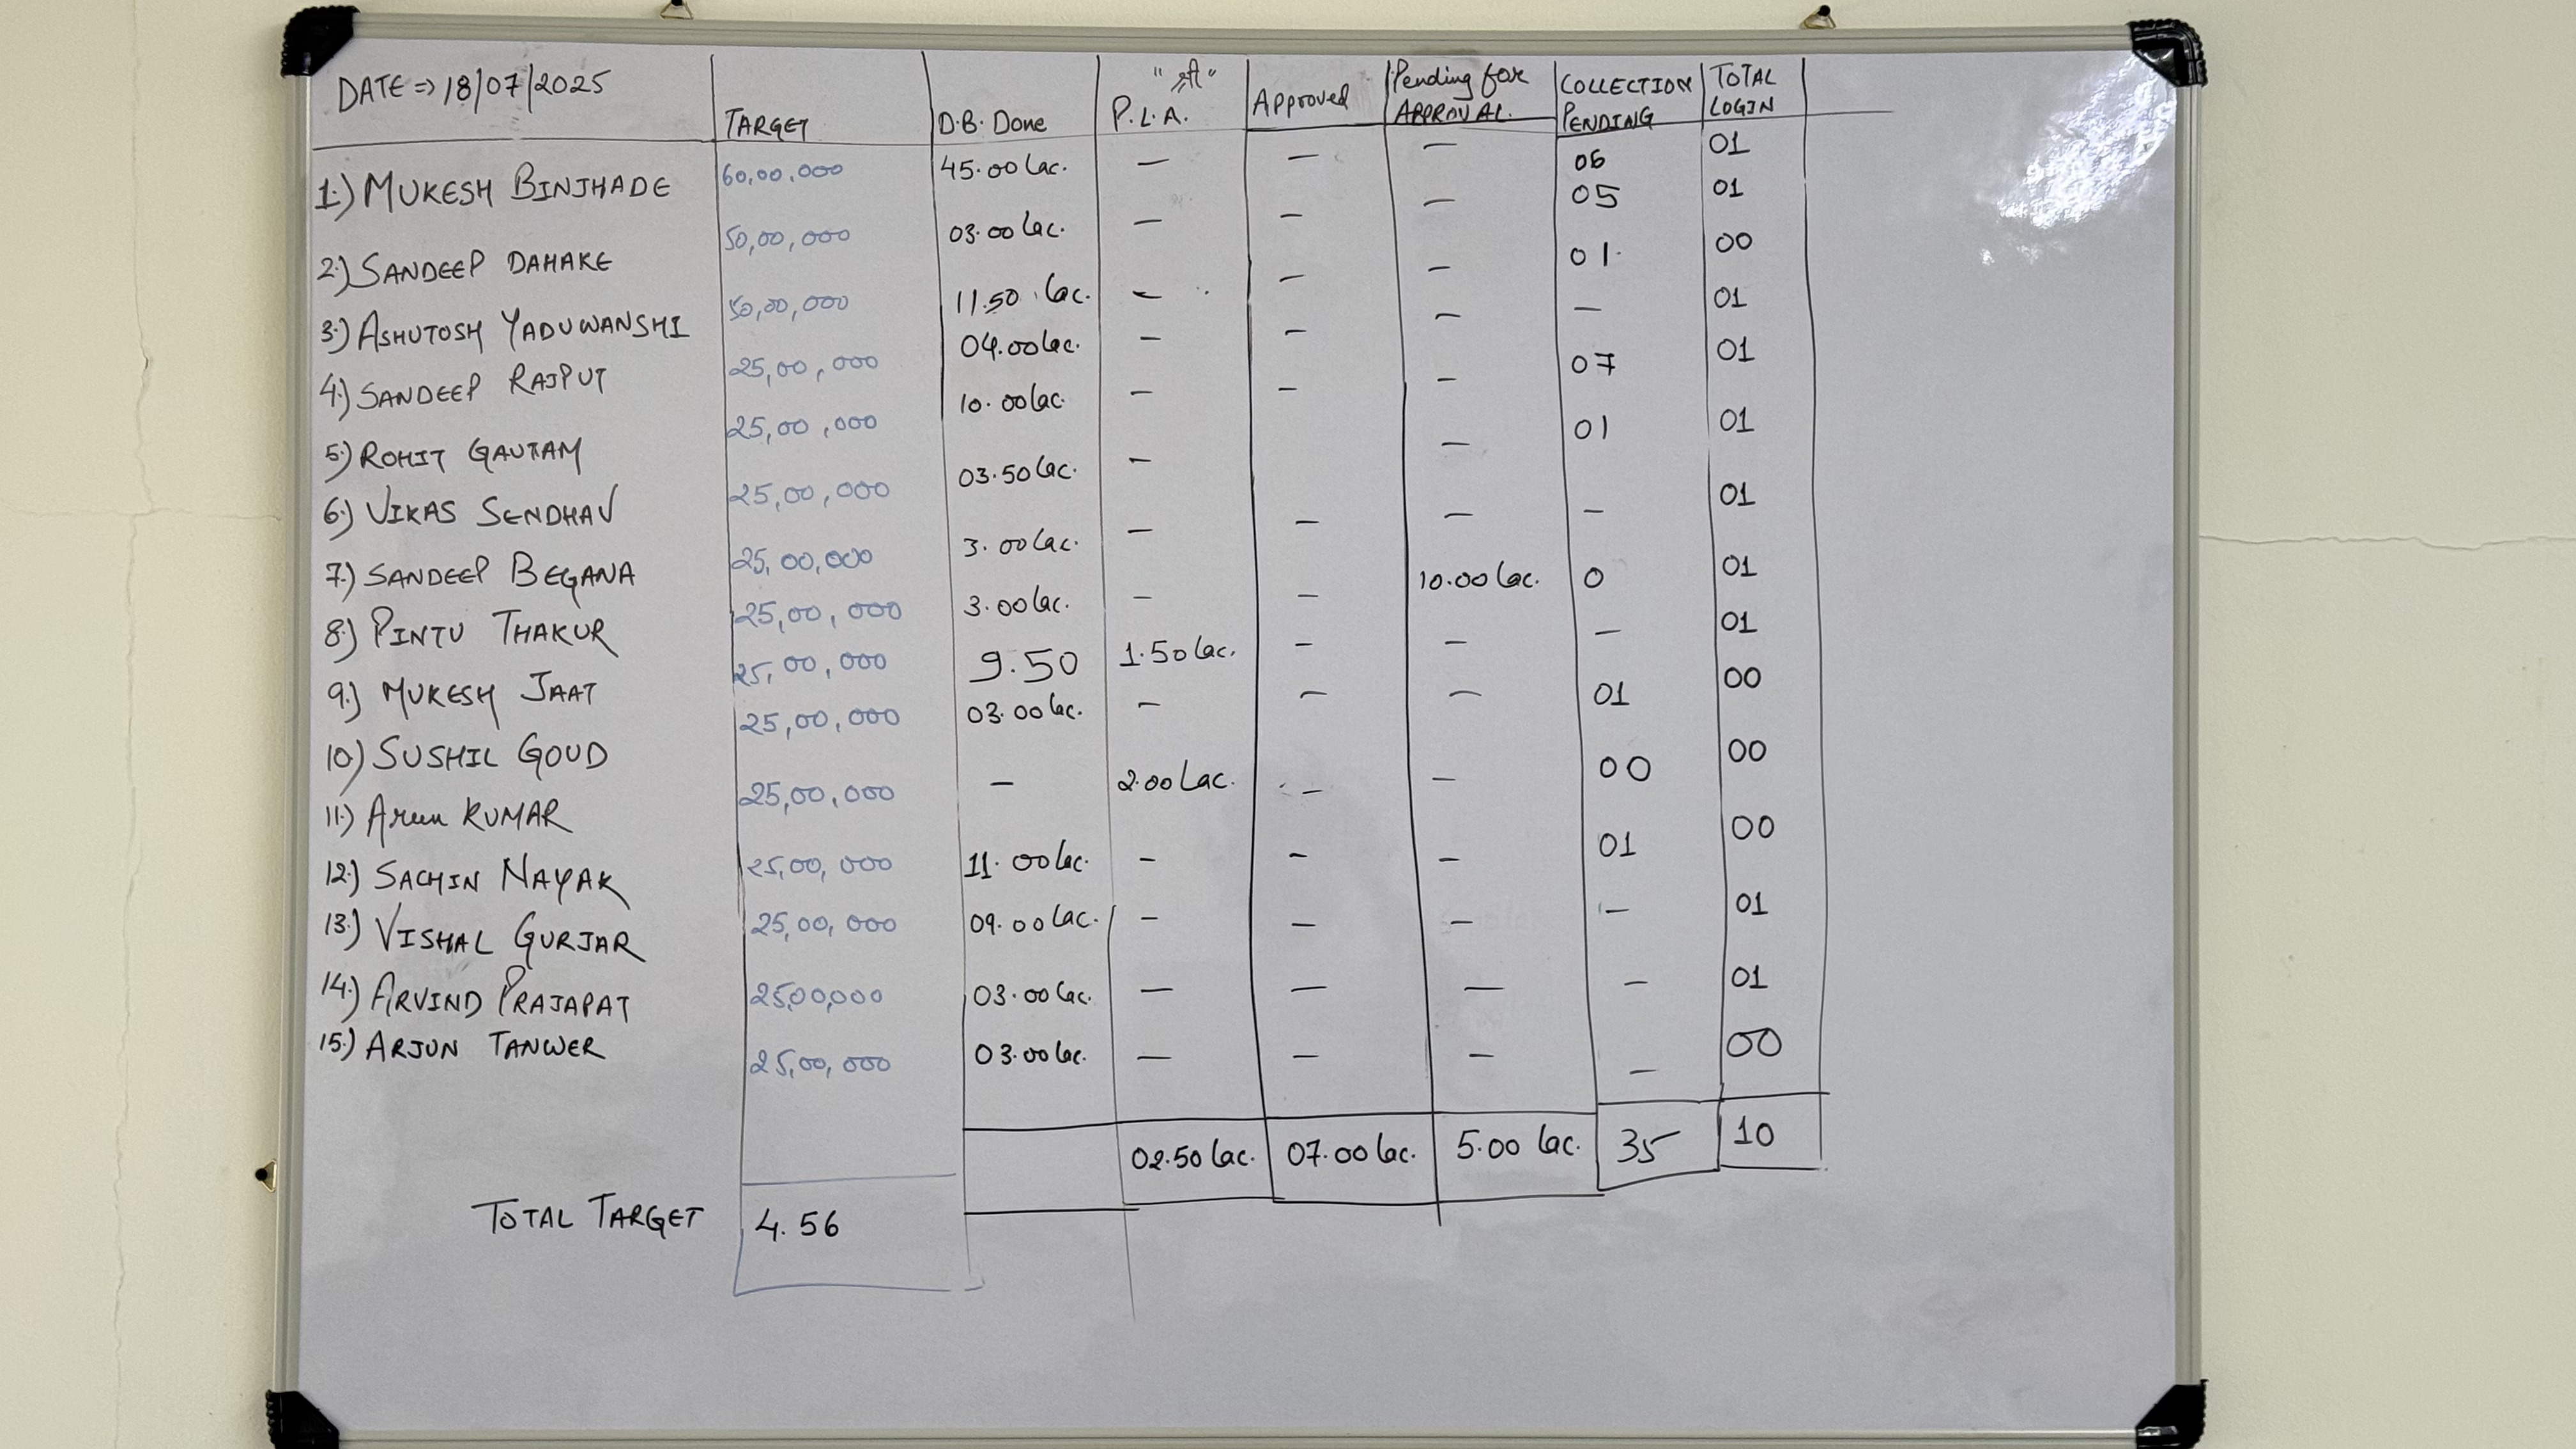 DATE => 18/07/2025 TARGET D.B. Done "श्री" P.L.A. Approved Pending for APPROVAL. COLLECTION PENDING TOTAL LOGIN
1.) MUKESH BINJHADE 60,00,000 45.00 lac. — — — 06 01
2.) SANDEEP DAHAKE 50,00,000 03.00 lac. — — — 05 01
3.) ASHUTOSH YADUWANSHI 50,00,000 11.50 lac. — — — 01 00
4.) SANDEEP RAJPUT 25,00,000 04.00 lac. — — — — 01
5.) ROHIT GAUTAM 25,00,000 10.00 lac. — — — 07 01
6.) VIKAS SENDHAV 25,00,000 03.50 lac. — — 01 01
7.) SANDEEP BEGANA 25,00,000 3.00 lac. — — — — 01
8.) PINTU THAKUR 25,00,000 3.00 lac. — — 10.00 lac. 0 01
9.) MUKESH JAAT 25,00,000 9.50 1.50 lac. — — — 01
10.) SUSHIL GOUD 25,00,000 03.00 lac. — — — 01 00
11.) Arun KUMAR 25,00,000 — 2.00 Lac. — — 00 00
12.) SACHIN NAYAK 25,00,000 11.00 lac. — — — 01 00
13.) VISHAL GURJAR 25,00,000 09.00 lac. — — — — 01
14.) ARVIND PRAJAPAT 25,00,000 03.00 lac. — — — — 01
15.) ARJUN TANWER 25,00,000 03.00 lac. — — — — 00
02.50 lac. 07.00 lac. 5.00 lac. 35 10
TOTAL TARGET 4.56